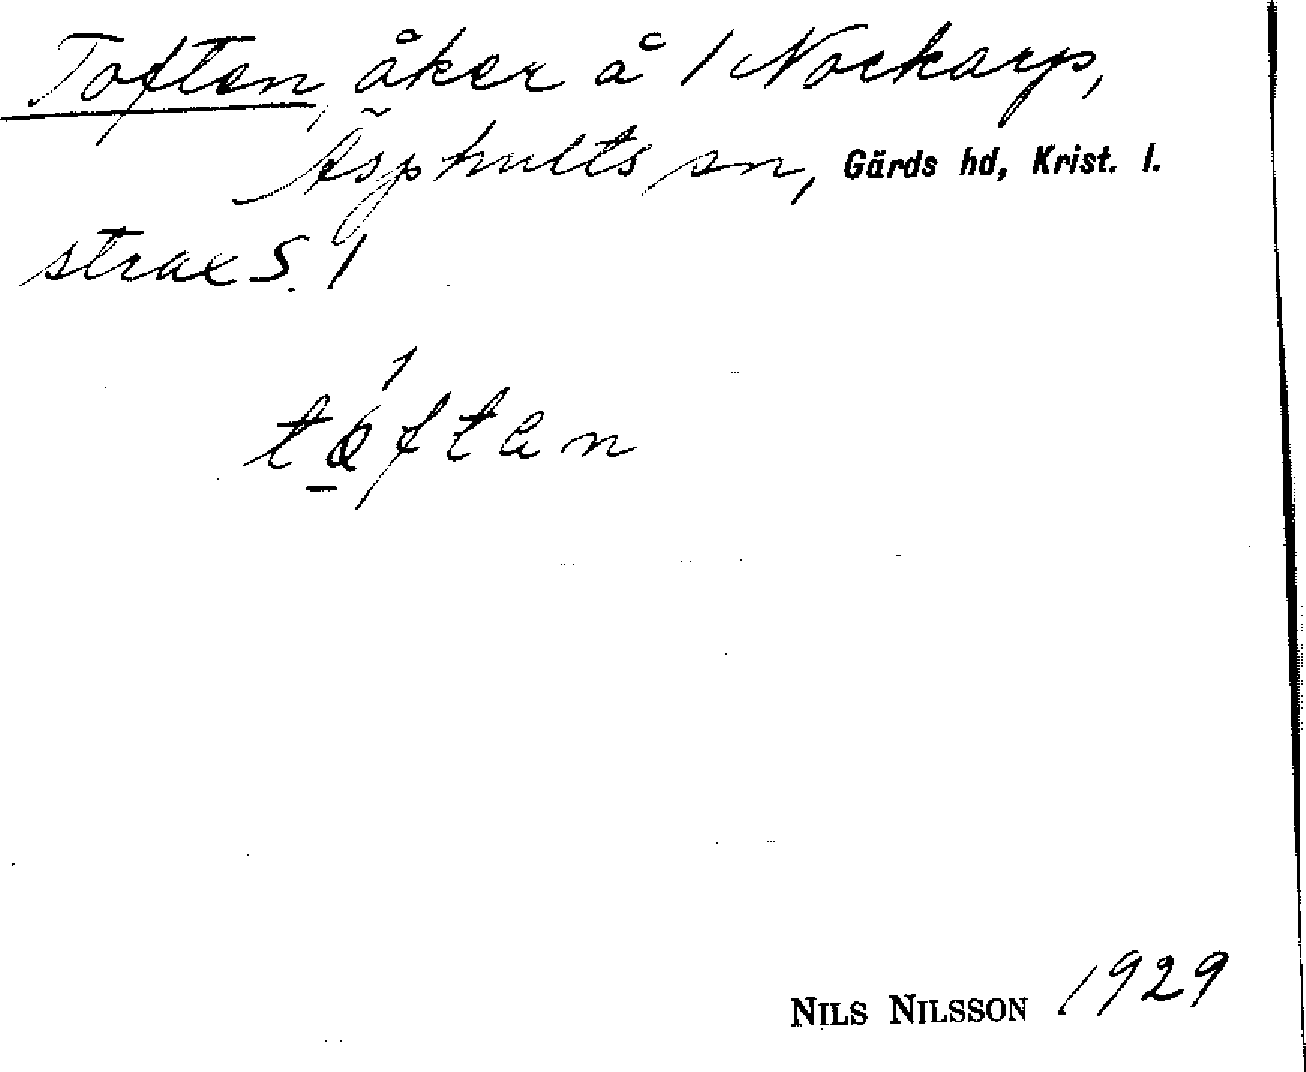 Toften, åker å 1 Nockarp,
Äsphults sn, Gärds hd, Krist. l.
strax S. 1
tóften
NILS NILSSON 1929